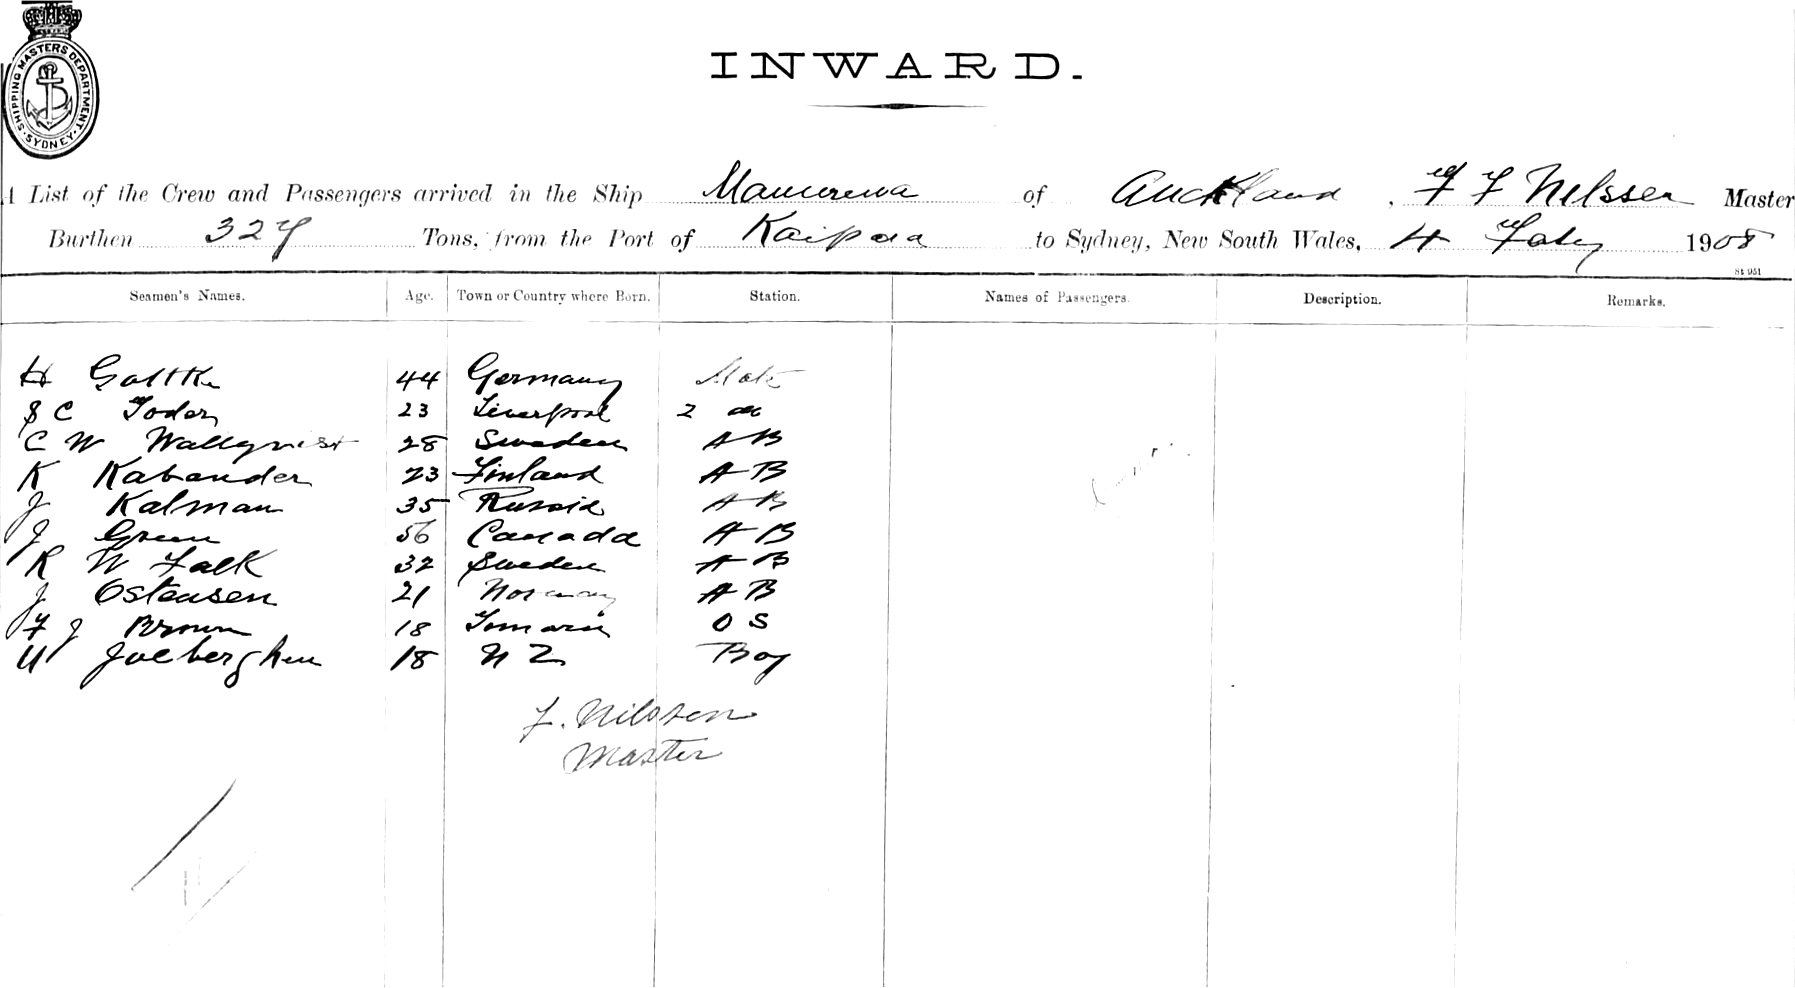 SHIPPING MASTERS DEPARTMENT · SYDNEY ·
INWARD.
A List of the Crew and Passengers arrived in the Ship Manurewa of Auckland, F F Nilssen Master
Burthen 327 Tons, from the Port of Kaipara to Sydney, New South Wales, 4 Feby 1908
St 951
Seamen's Names. Age. Town or Country where Born. Station. Names of Passengers. Description. Remarks.
H 44 Germany Mate
C 23 Liverpool 2 m
C W Wallqvist 28 Sweden A B
K Kabander 23 Finland A B
J Kalman 35 Russia A B
J Green 56 Canada A B
R W Falk 32 Sweden A B
J Ostensen 21 Norway A B
F J Brown 18 O S
18 N Z Boy
F. Nilssen
Master